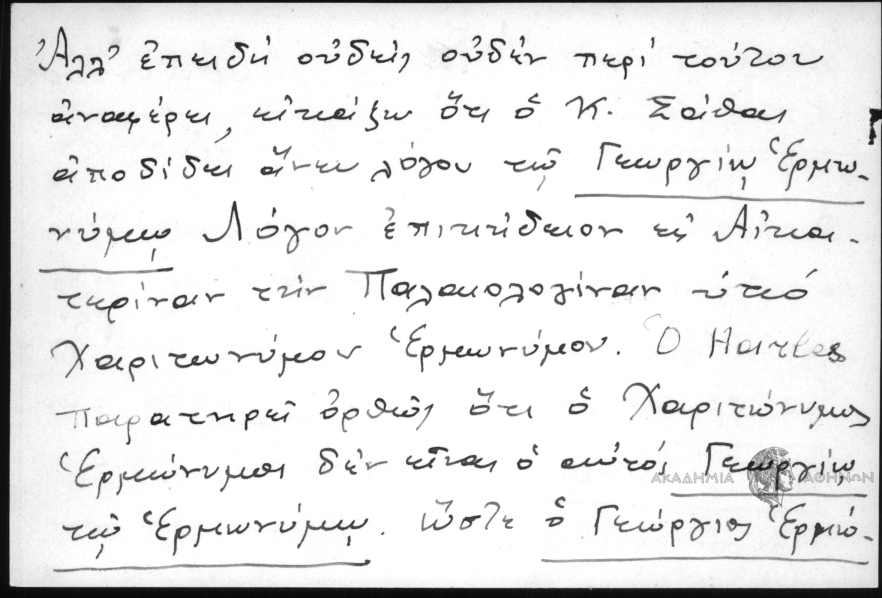 Ἀλλ' ἐπειδὴ οὐδεὶς οὐδὲν περὶ τούτου
ἀναφέρει, εἰκάζω ὅτι ὁ Κ. Σάθας
ἀποδίδει ἄνευ λόγου τῷ Γεωργίῳ Ἑρμω-
νύμῳ Λόγον ἐπικήδειον εἰς Αἰκα-
τερίναν τὴν Παλαιολογίναν ὑπὸ
Χαριτωνύμου Ἑρμωνύμου. Ὁ Harles
παρατηρεῖ ὀρθῶς ὅτι ὁ Χαριτώνυμος
Ἑρμώνυμος δὲν εἶναι ὁ αὐτός Γεωργίῳ
τῷ Ἑρμωνύμῳ. ὥστε ὁ Γεώργιος Ἑρμώ-
ΑΚΑΔΗΜΙΑ ΑΘΗΝΩΝ